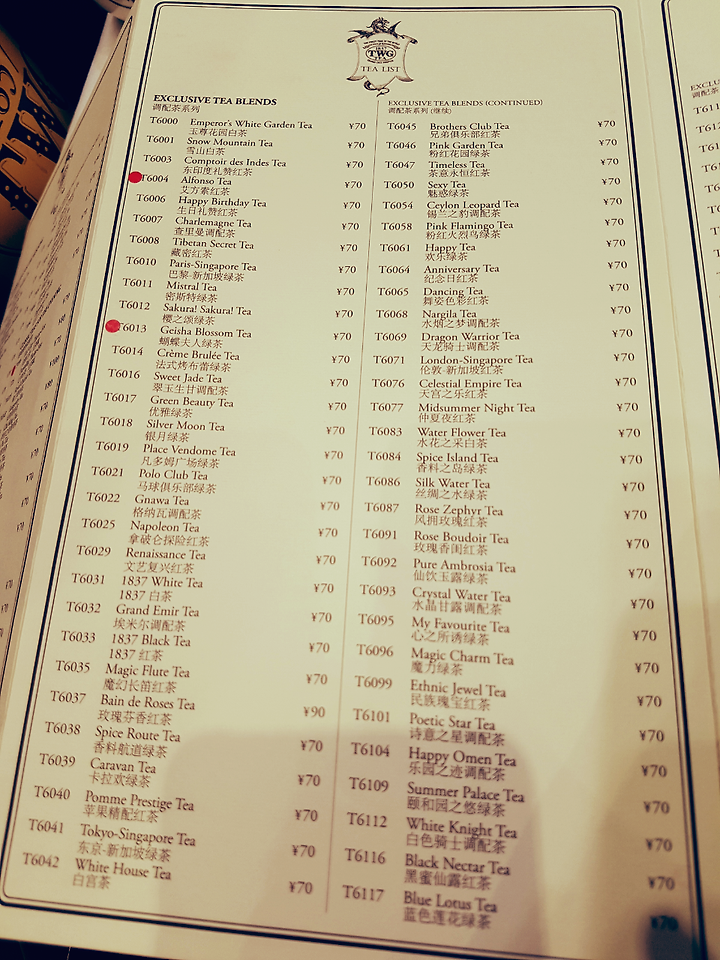 TWG
TEA LIST
EXCLUSIVE TEA BLENDS
调配茶系列
T6000 Emperor's White Garden Tea ¥70
玉尊花园白茶
T6001 Snow Mountain Tea ¥70
雪山白茶
T6003 Comptoir des Indes Tea ¥70
东印度礼赞红茶
T6004 Alfonso Tea ¥70
艾方索红茶
T6006 Happy Birthday Tea ¥70
生日礼赞红茶
T6007 Charlemagne Tea ¥70
查里曼调配茶
T6008 Tibetan Secret Tea ¥70
藏密红茶
T6010 Paris-Singapore Tea ¥70
巴黎-新加坡绿茶
T6011 Mistral Tea ¥70
密斯特绿茶
T6012 Sakura! Sakura! Tea ¥70
樱之颂绿茶
T6013 Geisha Blossom Tea ¥70
蝴蝶夫人绿茶
T6014 Crème Brulée Tea ¥70
法式烤布蕾绿茶
T6016 Sweet Jade Tea ¥70
翠玉生甘调配茶
T6017 Green Beauty Tea ¥70
优雅绿茶
T6018 Silver Moon Tea ¥70
银月绿茶
T6019 Place Vendome Tea ¥70
凡多姆广场绿茶
T6021 Polo Club Tea ¥70
马球俱乐部绿茶
T6022 Gnawa Tea ¥70
格纳瓦调配茶
T6025 Napoleon Tea ¥70
拿破仑探险红茶
T6029 Renaissance Tea ¥70
文艺复兴红茶
T6031 1837 White Tea ¥70
1837 白茶
T6032 Grand Emir Tea ¥70
埃米尔调配茶
T6033 1837 Black Tea ¥70
1837 红茶
T6035 Magic Flute Tea ¥70
魔幻长笛红茶
T6037 Bain de Roses Tea ¥90
玫瑰芬香红茶
T6038 Spice Route Tea ¥70
香料航道绿茶
T6039 Caravan Tea ¥70
卡拉欢绿茶
T6040 Pomme Prestige Tea ¥70
苹果精配红茶
T6041 Tokyo-Singapore Tea ¥70
东京-新加坡绿茶
T6042 White House Tea ¥70
白宫茶
EXCLUSIVE TEA BLENDS (CONTINUED)
调配茶系列 (继续)
T6045 Brothers Club Tea ¥70
兄弟俱乐部红茶
T6046 Pink Garden Tea ¥70
粉红花园绿茶
T6047 Timeless Tea ¥70
茶意永恒红茶
T6050 Sexy Tea ¥70
魅惑绿茶
T6054 Ceylon Leopard Tea ¥70
锡兰之豹调配茶
T6058 Pink Flamingo Tea ¥70
粉红火烈鸟绿茶
T6061 Happy Tea ¥70
欢乐绿茶
T6064 Anniversary Tea ¥70
纪念日红茶
T6065 Dancing Tea ¥70
舞姿色彩红茶
T6068 Nargila Tea ¥70
水烟之梦调配茶
T6069 Dragon Warrior Tea ¥70
天龙骑士调配茶
T6071 London-Singapore Tea ¥70
伦敦-新加坡红茶
T6076 Celestial Empire Tea ¥70
天宫之乐红茶
T6077 Midsummer Night Tea ¥70
仲夏夜红茶
T6083 Water Flower Tea ¥70
水花之采白茶
T6084 Spice Island Tea ¥70
香料之岛绿茶
T6086 Silk Water Tea ¥70
丝绸之水绿茶
T6087 Rose Zephyr Tea ¥70
风拥玫瑰红茶
T6091 Rose Boudoir Tea ¥70
玫瑰香闺红茶
T6092 Pure Ambrosia Tea ¥70
仙饮玉露绿茶
T6093 Crystal Water Tea ¥70
水晶甘露调配茶
T6095 My Favourite Tea ¥70
心之所诱绿茶
T6096 Magic Charm Tea ¥70
魔力绿茶
T6099 Ethnic Jewel Tea ¥70
民族瑰宝红茶
T6101 Poetic Star Tea ¥70
诗意之星调配茶
T6104 Happy Omen Tea ¥70
乐园之迹调配茶
T6109 Summer Palace Tea ¥70
颐和园之悠绿茶
T6112 White Knight Tea ¥70
白色骑士调配茶
T6116 Black Nectar Tea ¥70
黑蜜仙露红茶
T6117 Blue Lotus Tea ¥70
蓝色莲花绿茶